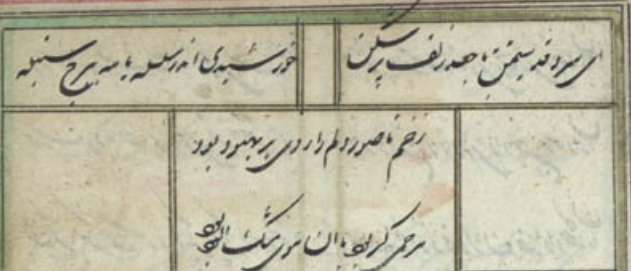 ای سرو قد سیمتن با جعد زلف پر شکن
خورشیدی اندر سلسله یا مه ببرج سنبله
زخم ناصور دلم را روی بر بهبود بود
مرحمی کر بود آن موی مشک آلود بود